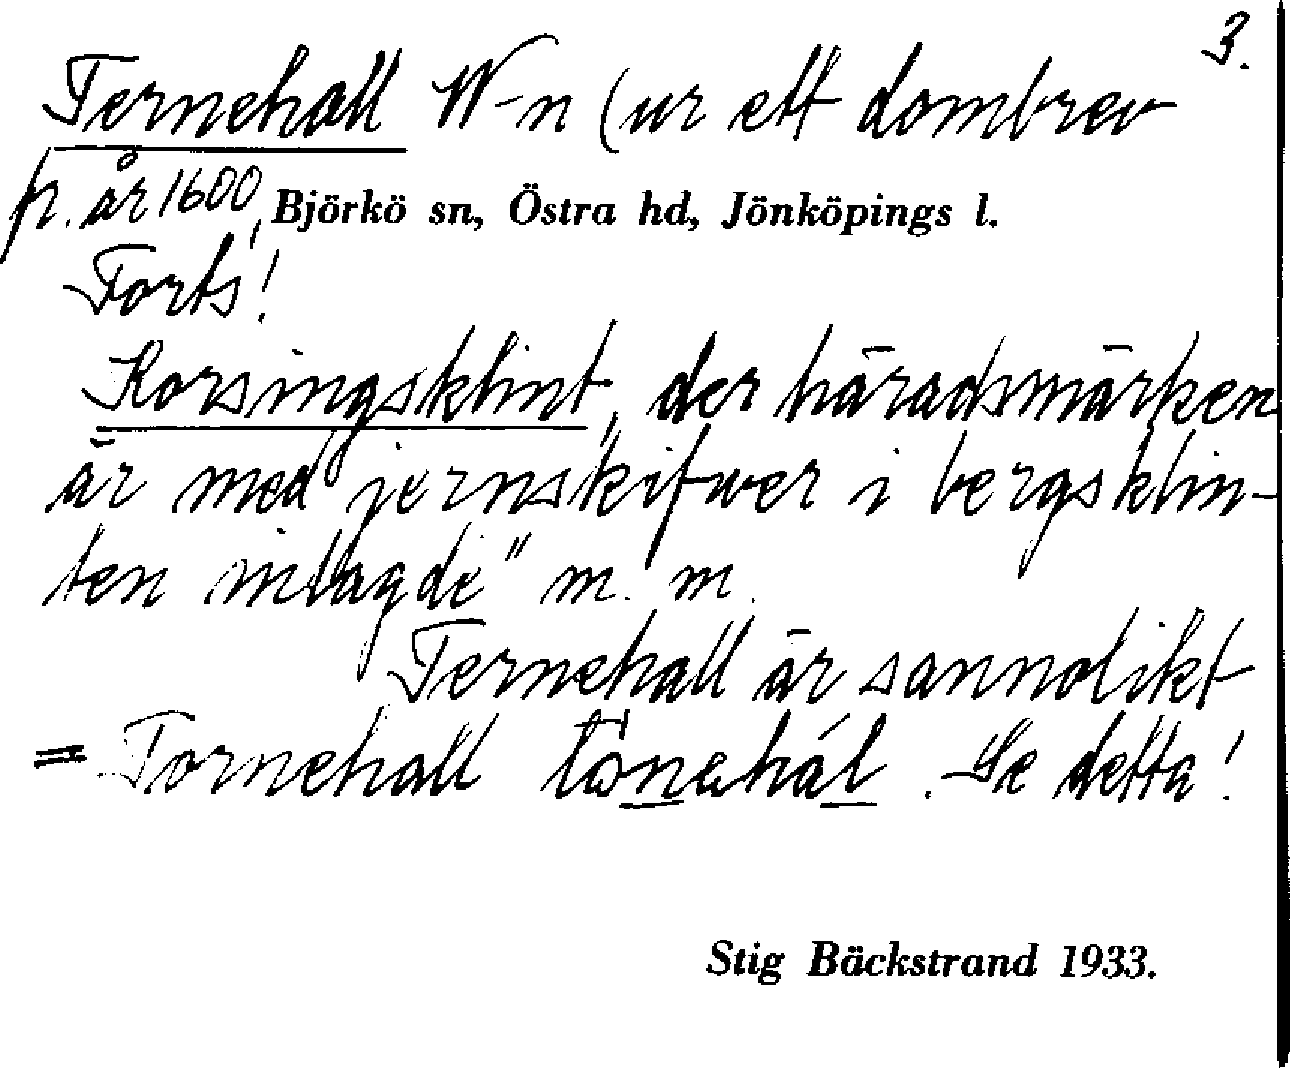 3.
Ternehall W-n (ur ett dombrev
p. år 1600,
Björkö sn, Östra hd, Jönköpings l.
Forts!
Korsingsklint, der häradsmärken
är med jernskifwer i bergsklin-
ten inlagde" m. m.
Ternehall är sannolikt
= Tornehall . Se detta!
Stig Bäckstrand 1933.